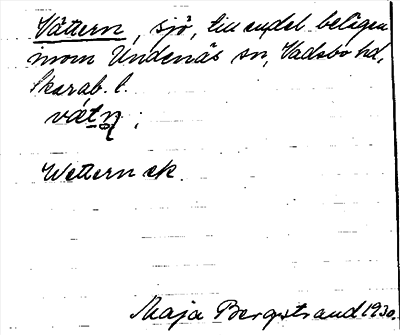 Vättern, sjö, till en del belägen
inom Undenäs sn, Vadsbo hd,
Skarab. l.
vätn;
Wettern ek.
Maja Bergstrand 1930.